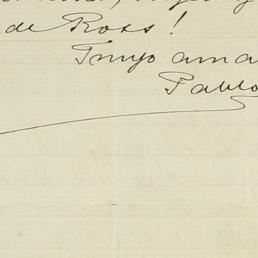 de Ross!
Tuyo ama
Pablo